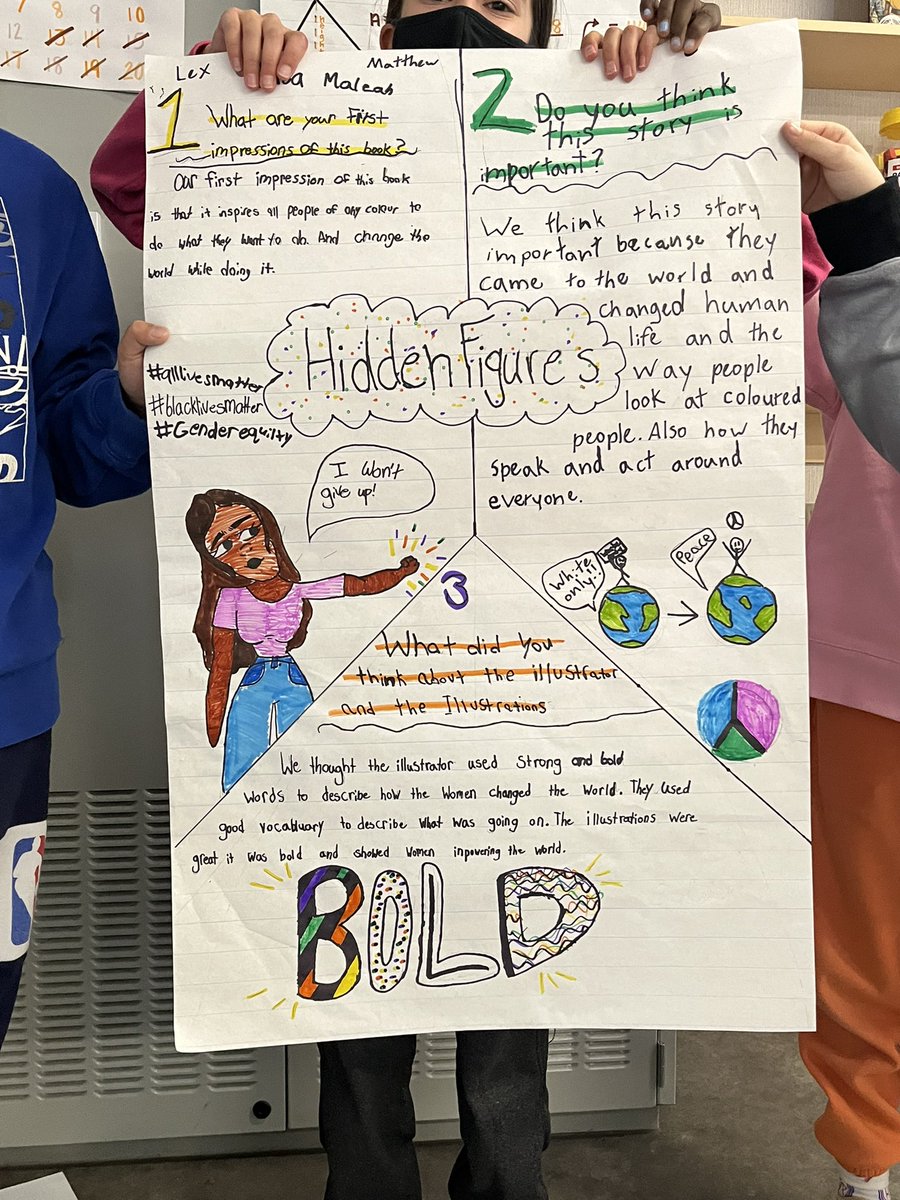 7 8 9 10
13 14 15
17 18 19 20
Lex
Matthew
Maleah
1
What are your First
impressions of this book?
Our first impression of this book
is that it inspires all people of any colour to
do what they want to do. And change the
world while doing it.
2
Do you think
this story is
important?
We think this story
important because they
came to the world and
changed human
life and the
way people
look at coloured
people. Also how they
speak and act around
everyone.
Hidden Figures
#alllivesmatter
#blacklivesmatter
#Genderequilty
I won't
give up!
White
only!!
Peace
3
What did you
think about the illustrator
and the Illustrations
We thought the illustrator used strong and bold
words to describe how the women changed the world. They used
good vocabluary to describe what was going on. The illustrations were
great it was bold and showed women inpowering the world.
BOLD